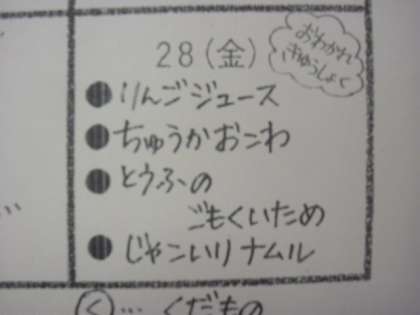 28(金)
おわかれ
きゅうしょく
●りんごジュース
●ちゅうかおこわ
●とうふの
ごもくいため
●じゃこいりナムル
く… くだもの